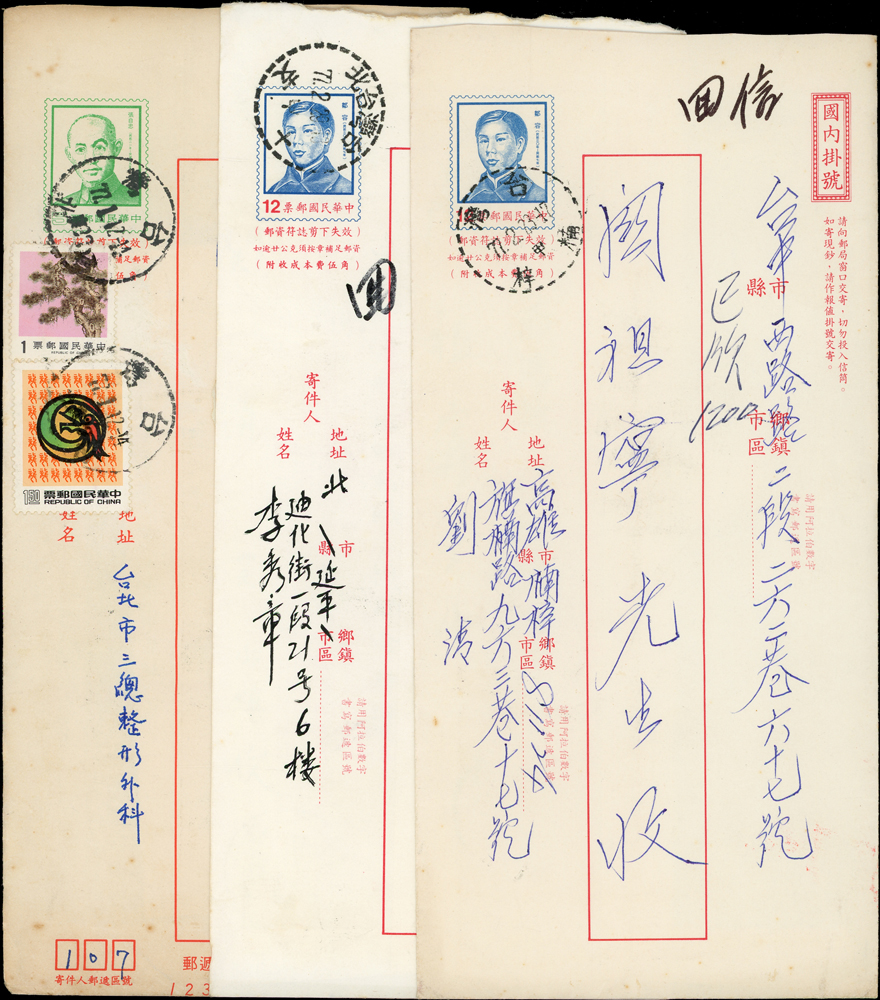 國內掛號
請向郵局窗口交寄,切勿投入信筒。
如寄現鈔,請作報值掛號交寄。
回信
市縣
西路
二段二六二巷六十七號
鄉鎮市區
請用阿拉伯數字
書寫郵遞區號
已欣
1200
祖寧先生收
郵容
中華民國郵票
(郵資符誌剪下失效)
如逾廿公克須按章補足郵資
(附收成本費伍角)
台灣
楠梓
寄件人
地址
姓名
高雄市楠梓
市縣
鄉鎮市區
旗楠路九六三巷十七號
劉清
請用阿拉伯數字
書寫郵遞區號
郵容
12中華民國郵票
(郵資符誌剪下失效)
如逾廿公克須按章補足郵資
(附收成本費伍角)
台灣台北
77.2
回
寄件人
地址
姓名
北
市縣
延平
鄉鎮市區
迪化街一段21号6楼
李秀章
請用阿拉伯數字
書寫郵遞區號
中華民國郵票
補足郵資
伍角)
台
1中華民國郵票
REPUBLIC OF CHINA
150中華民國郵票
REPUBLIC OF CHINA
地址
姓名
台北市三總整形外科
107
寄件人郵遞區號
郵遞
123